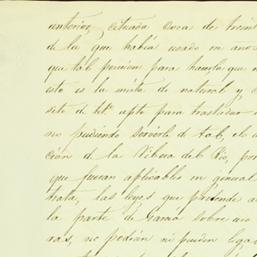 anterior, situada cosa de trein
de la que había usado en ano
que tal pension para hacerla que
esto es la mista de natural y
sito de tit.º apto para trasladar
no pudiendo servirle de tal, el d
ción de la Ribera del Rio, por
que fueran aplicables en general
trata, las leyes que pretende a
la parte de Garcia sobre un
ras, no podian ni pueden lega